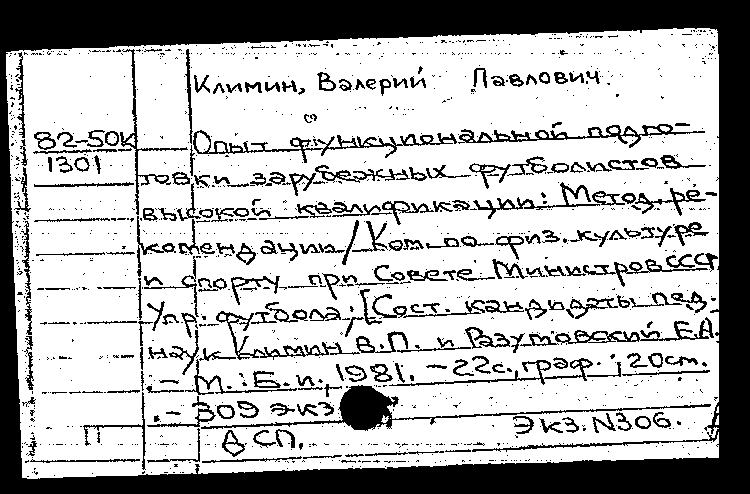 Климин, Валерий Павлович.
82-50К
1301
Опыт функциональной подго-
товки зарубежных футболистов
высокой квалификации: Метод. ре-
комендации / Ком. по физ. культуре
и спорту при Совете Министров СССР
Упр. футбола; [Сост. кандидаты пед.
наук Климин В.П. и Разумовский Е.А.
.- М.: Б.и., 1981. - 22с., граф.; 20см.
.- 309 экз
П
ДСП.
Экз. N306.